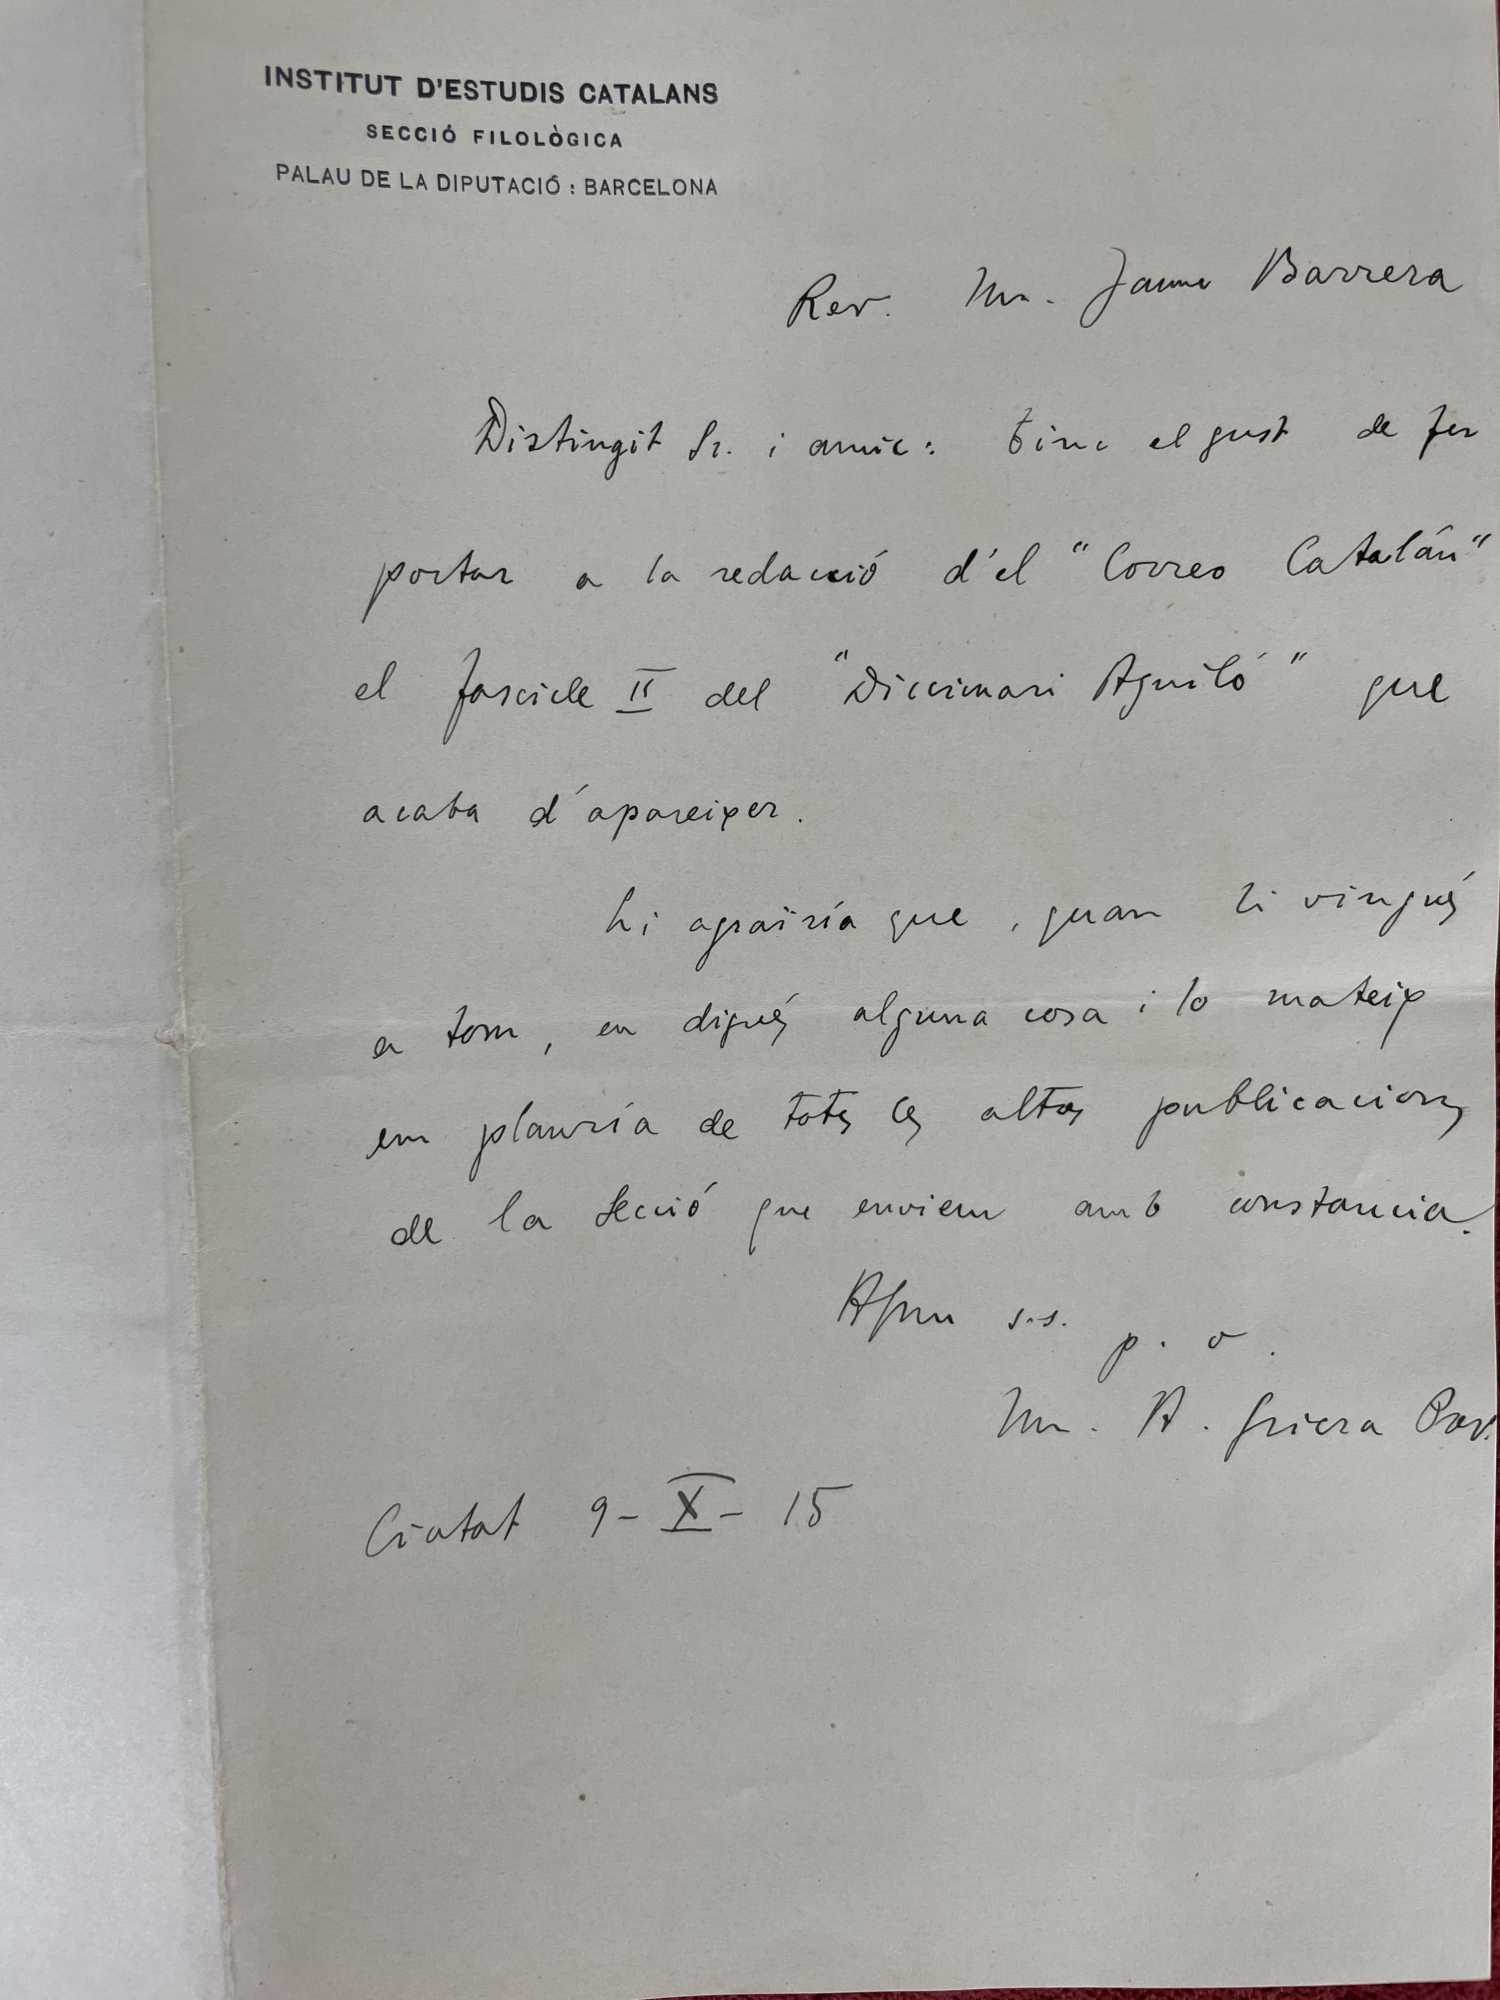 INSTITUT D'ESTUDIS CATALANS
SECCIÓ FILOLÒGICA
PALAU DE LA DIPUTACIÓ : BARCELONA
Rev. Mn. Jaume Barrera
Distingit Sr. i amic: tinc el gust de fer
portar a la redacció d'el "Correo Catalán"
el fascicle II del "Diccionari Aguiló" que
acaba d'apareixer.
Li agrairía que, quan li vingués
a tom, en digués alguna cosa i lo mateix
em plauría de totes les altres publicacions
de la Secció que enviem amb constancia.
Afm s.s.
p. o.
Mn. A. Griera Pvr.
Ciutat 9-X-15